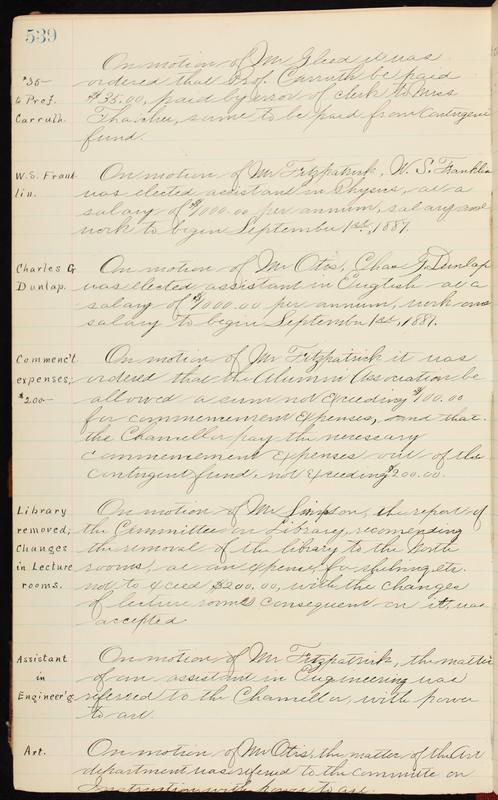 539
On motion of Mr Gleed it was
$35-
ordered that Prof. Carruth be paid
to Prof.
$35.00, paid by error of clerk to Miss
Carruth.
Thacher, same to be paid from Contingent
fund.
W.S. Frank
On motion of Mr Fitzpatrick, W. S. Franklin
lin.
was elected assistant in Physics, at a
salary of $1000.00 per annum, salary and
work to begin September 1st, 1887.
Charles G
On motion of Mr Otis, Chas G. Dunlap
Dunlap.
was elected assistant in English at a
salary of $1000.00 per annum, work and
salary to begin September 1st, 1887.
Commenc't
On motion of Mr Fitzpatrick it was
expenses;
ordered that the Alumni Association be
$200-
allowed a sum not exceeding $100.00
for commencement expenses, and that
the Chancellor pay the necessary
commencement expenses out of the
contingent fund, not exceeding $200.00.
Library
On motion of Mr Simpson, the report of
removed;
the Committee on Library, recomending
Changes
the removal of the library to the North
in Lecture
rooms, at an expense for shelving etc.
rooms.
not to exceed $200.00, with the changes
of lecture rooms consequent on it, was
accepted
Assistant
On motion of Mr Fitzpatrick, the matter
in
of an assistant in Engineering was
Engineer'g
referred to the Chancellor, with power
to act.
Art.
On motion of Mr Otis, the matter of the Art
department was referred to the committe on
Instruction with power to act.